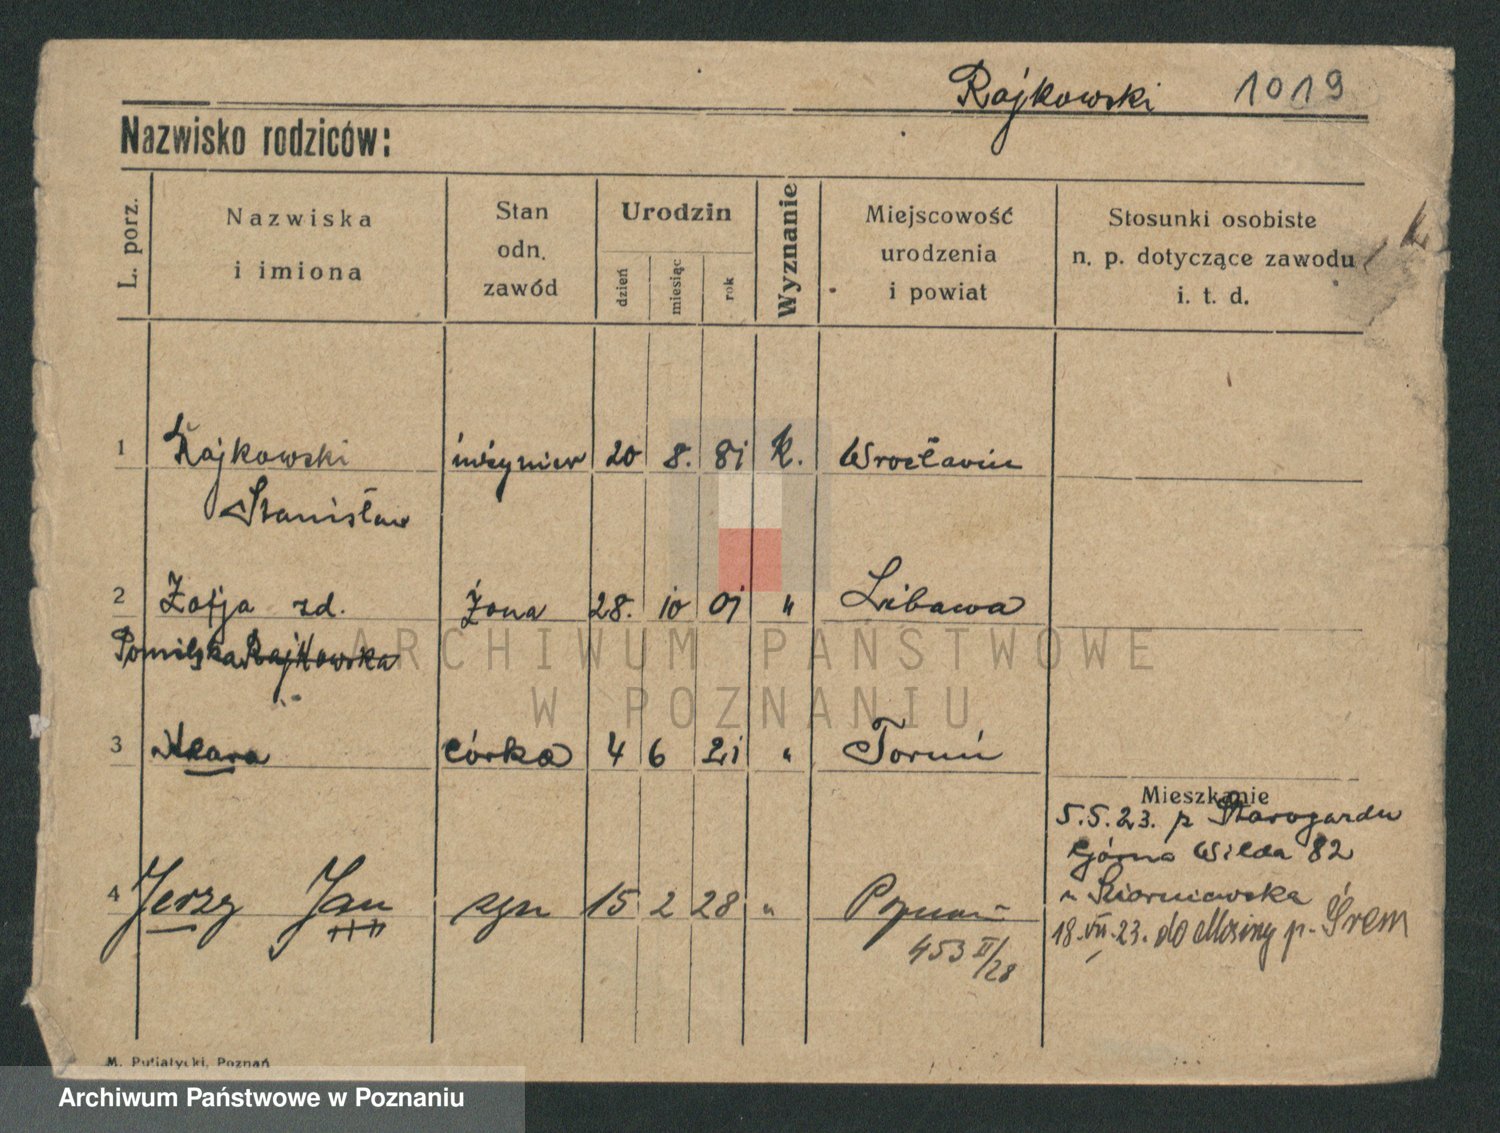 Rajkowski 1019
Nazwisko rodziców:
L. porz.
Nazwiska
i imiona
Stan
odn.
zawód
Urodzin
dzień
miesiąc
rok
Wyznanie
Miejscowość
urodzenia
i powiat
Stosunki osobiste
n. p. dotyczące zawodu
i. t. d.
1 Rajkowski inżynier 20 8. 81 K. Wrocławiu
Stanisław
2 Zofja zd. żona 28. 10 01 " Libawa
Pomilska Rajkowska
3 córka 4 6 21 " Toruń
Mieszkanie
5.5.23. p Starogardu
Górna Wilda 82
4 Jerzy Jan syn 15 2 28 " Poznań
453 II/28
18.VII.23. do Mosiny p. Śrem
M. Putiatycki, Poznań
ARCHIWUM PAŃSTWOWE
W POZNANIU
Archiwum Państwowe w Poznaniu